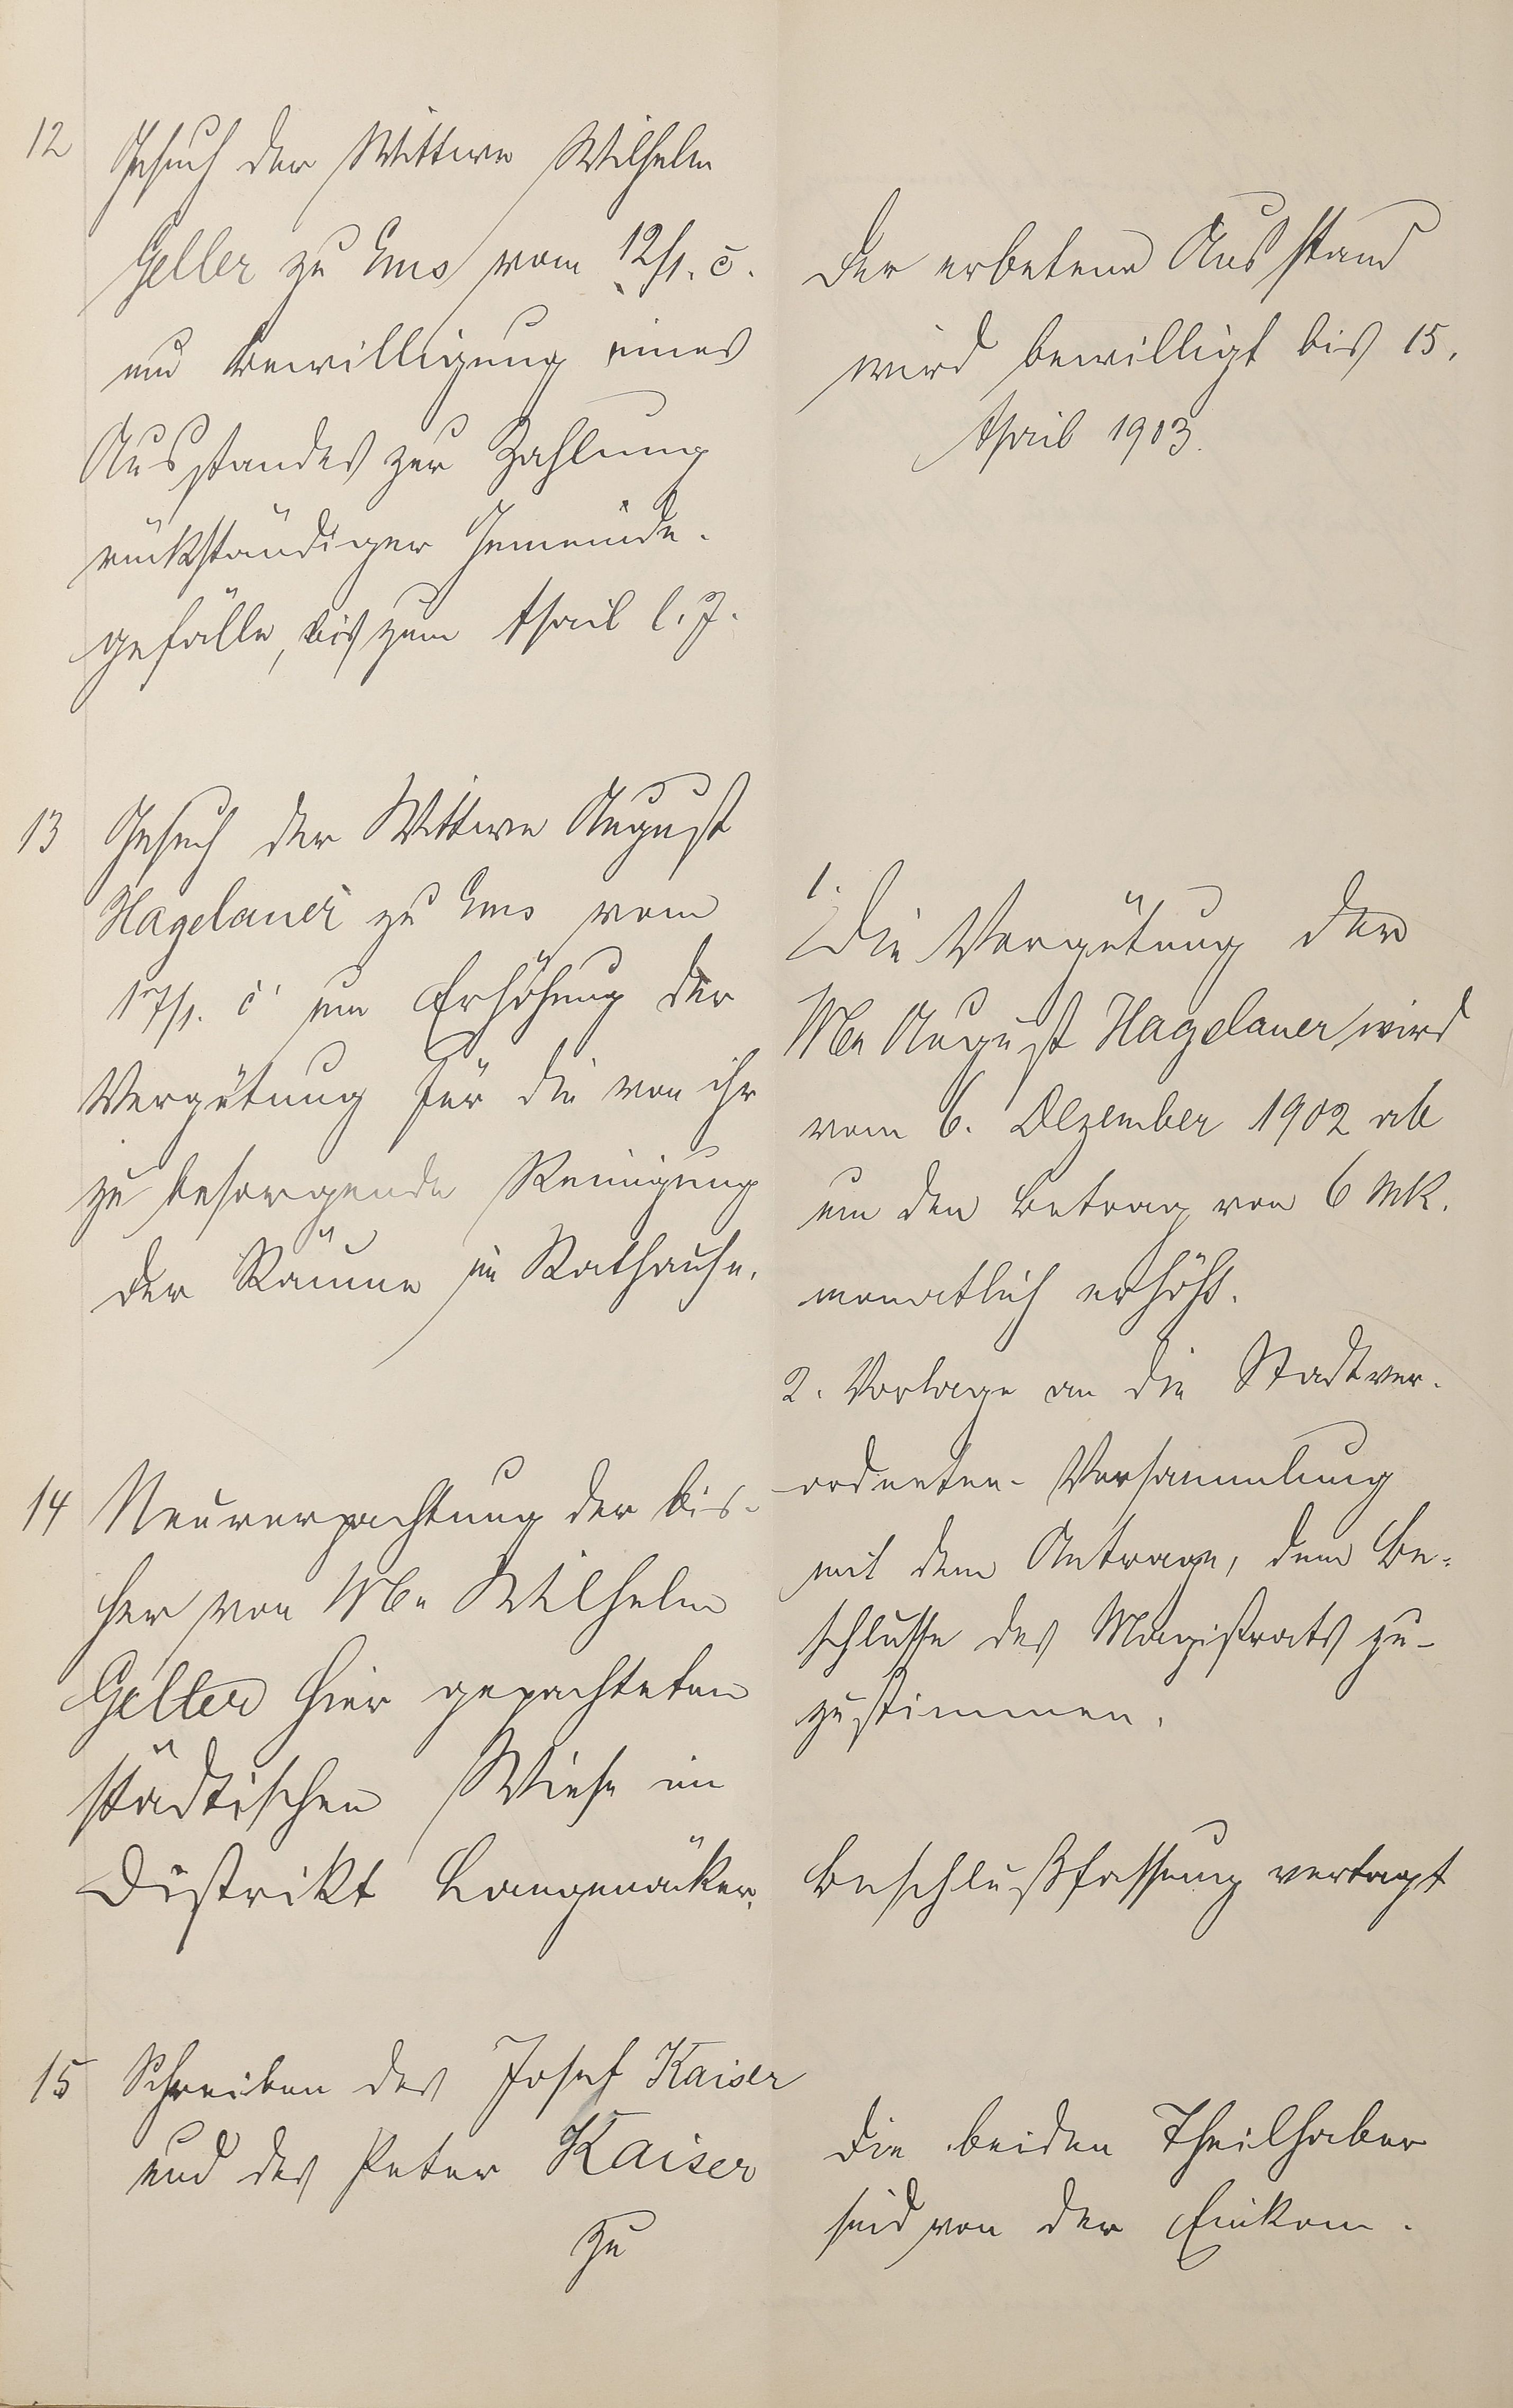 12
Gesuch der Wittwe Wilhelm
Geller zu Ems vom 12/1. c.
um Bewilligung eines
Ausstandes zur Zahlung
rückständiger Gemeinde-
gefälle, bis zum April l. J.
Der erbetene Ausstand
wird bewilligt bis 15.
April 1903.
13
Gesuch der Wittwe August
Hagelauer zu Ems vom
17/1. c. um Erhöhung der
Vergütung für die von ihr
zu besorgende Reinigung
der Räume im Rathause.
1.
Die Vergütung der
Wwe August Hagelauer wird
vom 6. Dezember 1902 ab
um den Betrag von 6 Mk.
monatlich erhöht.
2. Vorlage an die Stadtver-
ordneten-Versammlung
mit dem Antrage, dem Be-
schlusse des Magistrats zu-
zustimmen.
14
Neuverpachtung der bis-
her von Wwe Wilhelm
Geller hier gepachteten
städtischen Wiese im
Distrikt Langenäcker.
Beschlußfassung vertagt
15
Schreiben des Josef Kaiser
und des Peter Kaiser
zu
Die beiden Theilhaber
sind von der Einkom-